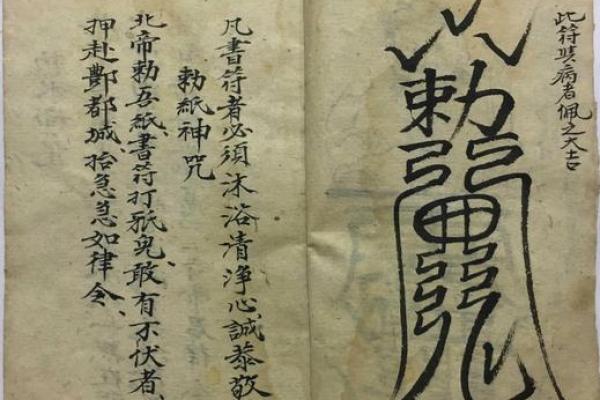 此符與病者佩之大吉
勅
凡書符者必須沐浴清淨心誠恭敬
勅紙神咒
北帝勅吾紙書符打邪鬼、敢有不伏者、
押赴酆都城、拾急急如律令、